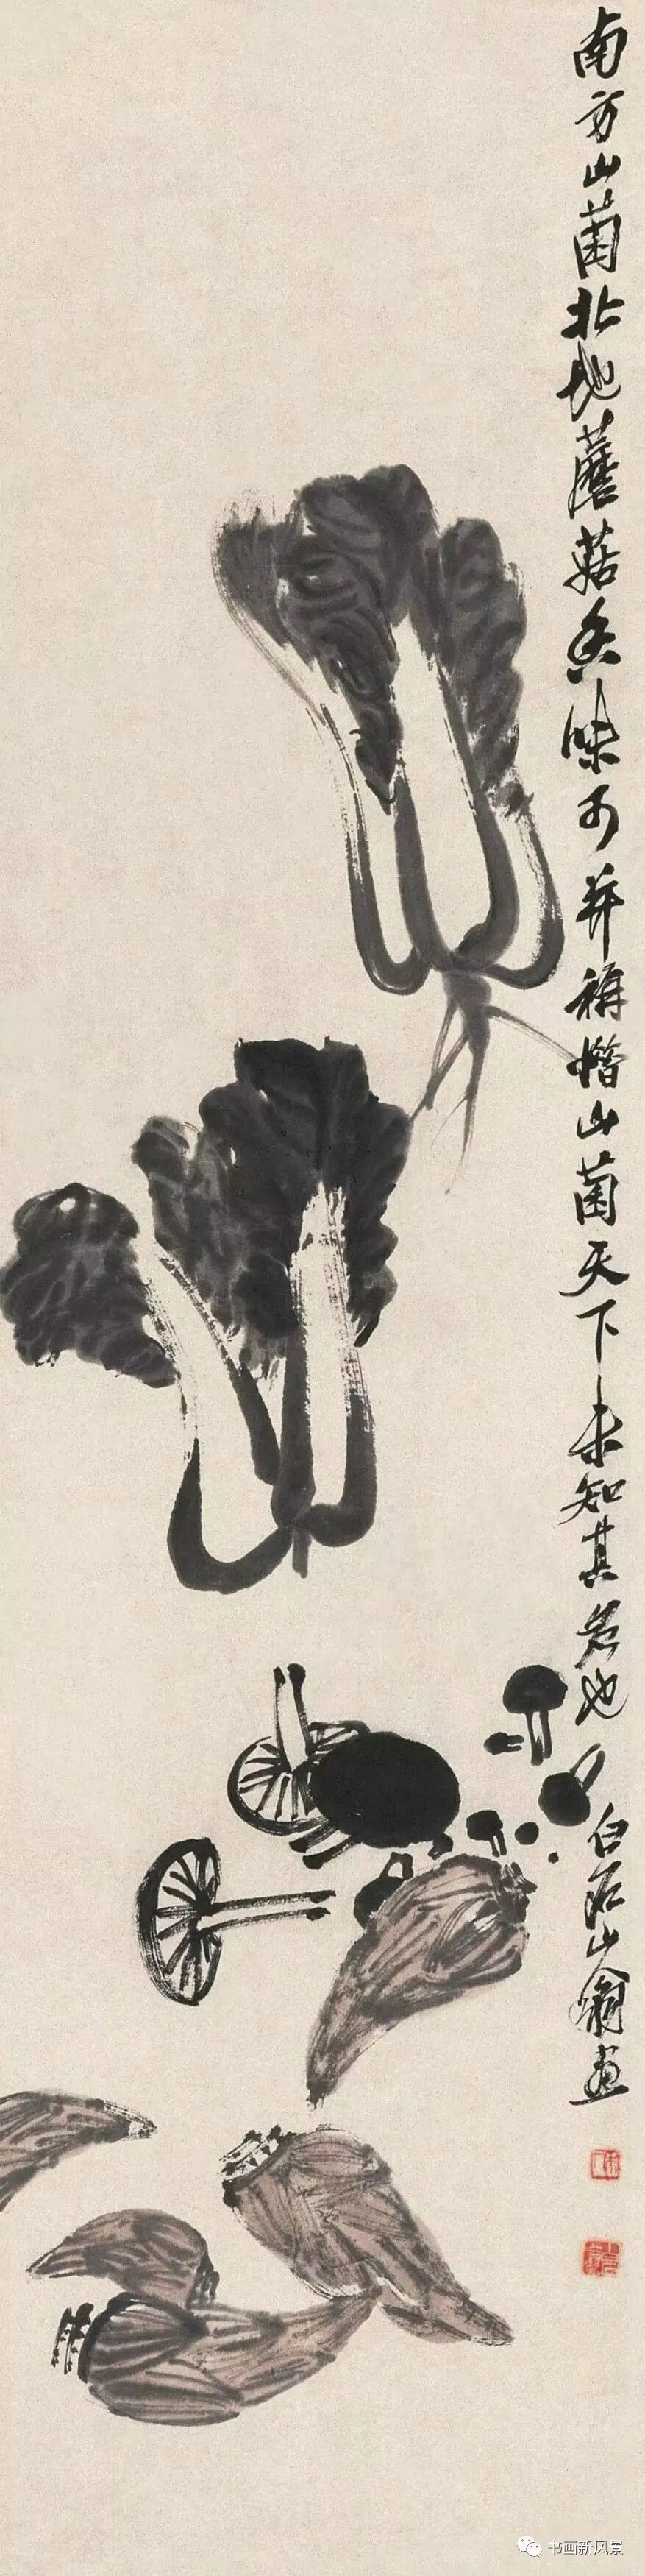 南方山菌北地蘑菇香味可并稱惜山菌天下未知其名也
白石山翁画
书画新风景